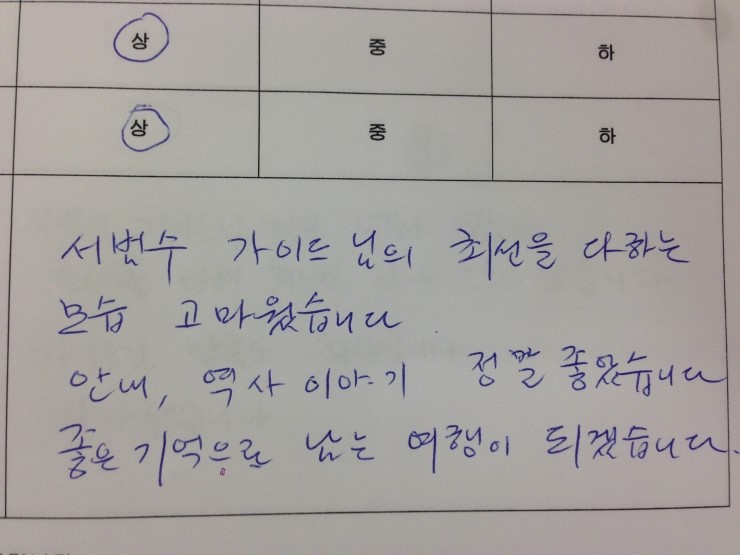 상 중 하
상 중 하
서범수 가이드 님의 최선을 다하는
모습 고마웠습니다
안내, 역사 이야기 정말 좋았습니다
좋은 기억으로 남는 여행이 되겠습니다.